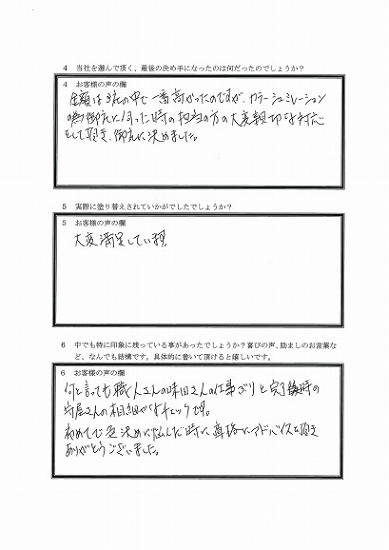 4 当社を選んで頂く、最後の決め手になったのは何だったのでしょうか？
4 お客様の声の欄
金額は3社の中で一番高かったのですが、カラーシュミレーション
の為御社に伺った時の担当の方の大変親切な対応
をして頂き、御社に決めました。
5 実際に塗り替えされていかがでしたでしょうか？
5 お客様の声の欄
大変満足しています
6 中でも特に印象に残っている事があったでしょうか？喜びの声、励ましのお言葉な
ど、なんでも結構です。具体的に書いて頂けると嬉しいです。
6 お客様の声の欄
何と言っても職人さんの味田さんの仕事ぶりと完了検時の
守屋さんの チェックです。
初めてで色決めに悩んだ時に真摯にアドバイスを頂き
ありがとうございました。